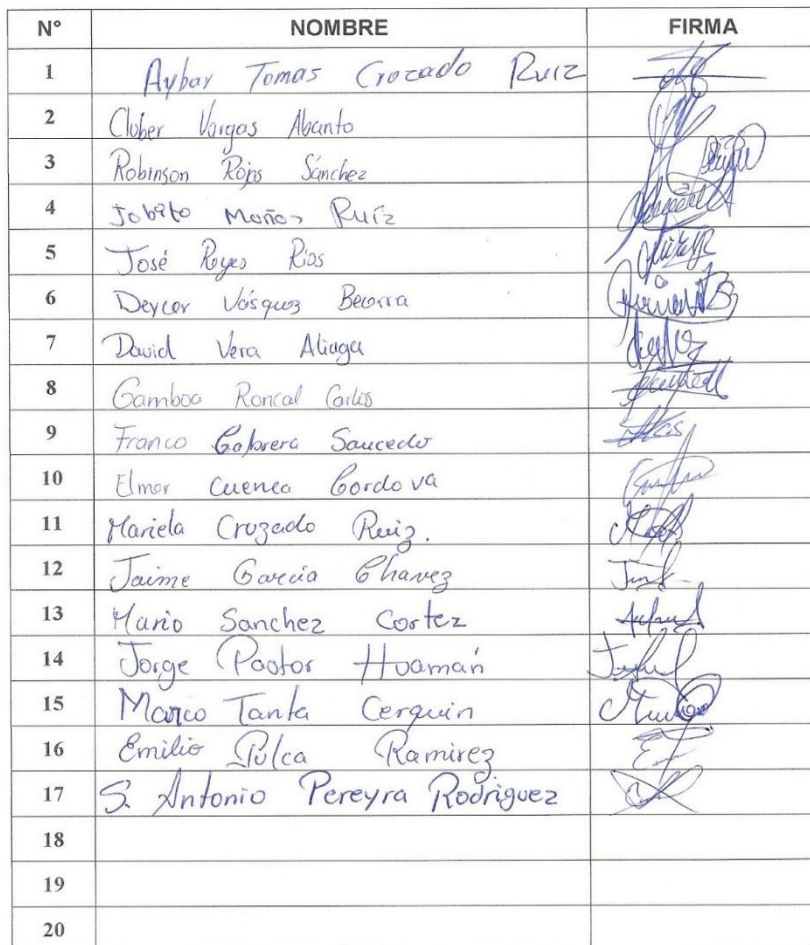 N° NOMBRE FIRMA
1 Aybar Tomas Crozado Ruiz
2 Clober Vargas Abanto
3 Robinson Rojas Sánchez
4 Jobito Ruíz
5 José Reyes Rios
6 Deycer Vásquez Becerra
7 David Vera Aliaga
8 Gamboa Roncal Carlos
9 Franco Cabrera Saucedo
10 Elmer Cuenca Cordova
11 Mariela Cruzado Ruiz.
12 Jaime Garcia Chavez
13 Mario Sanchez Cortez
14 Jorge Pastor Huamán
15 Marco Tanta Cerquin
16 Emilio Ramirez
17 S. Antonio Pereyra Rodriguez
18
19
20